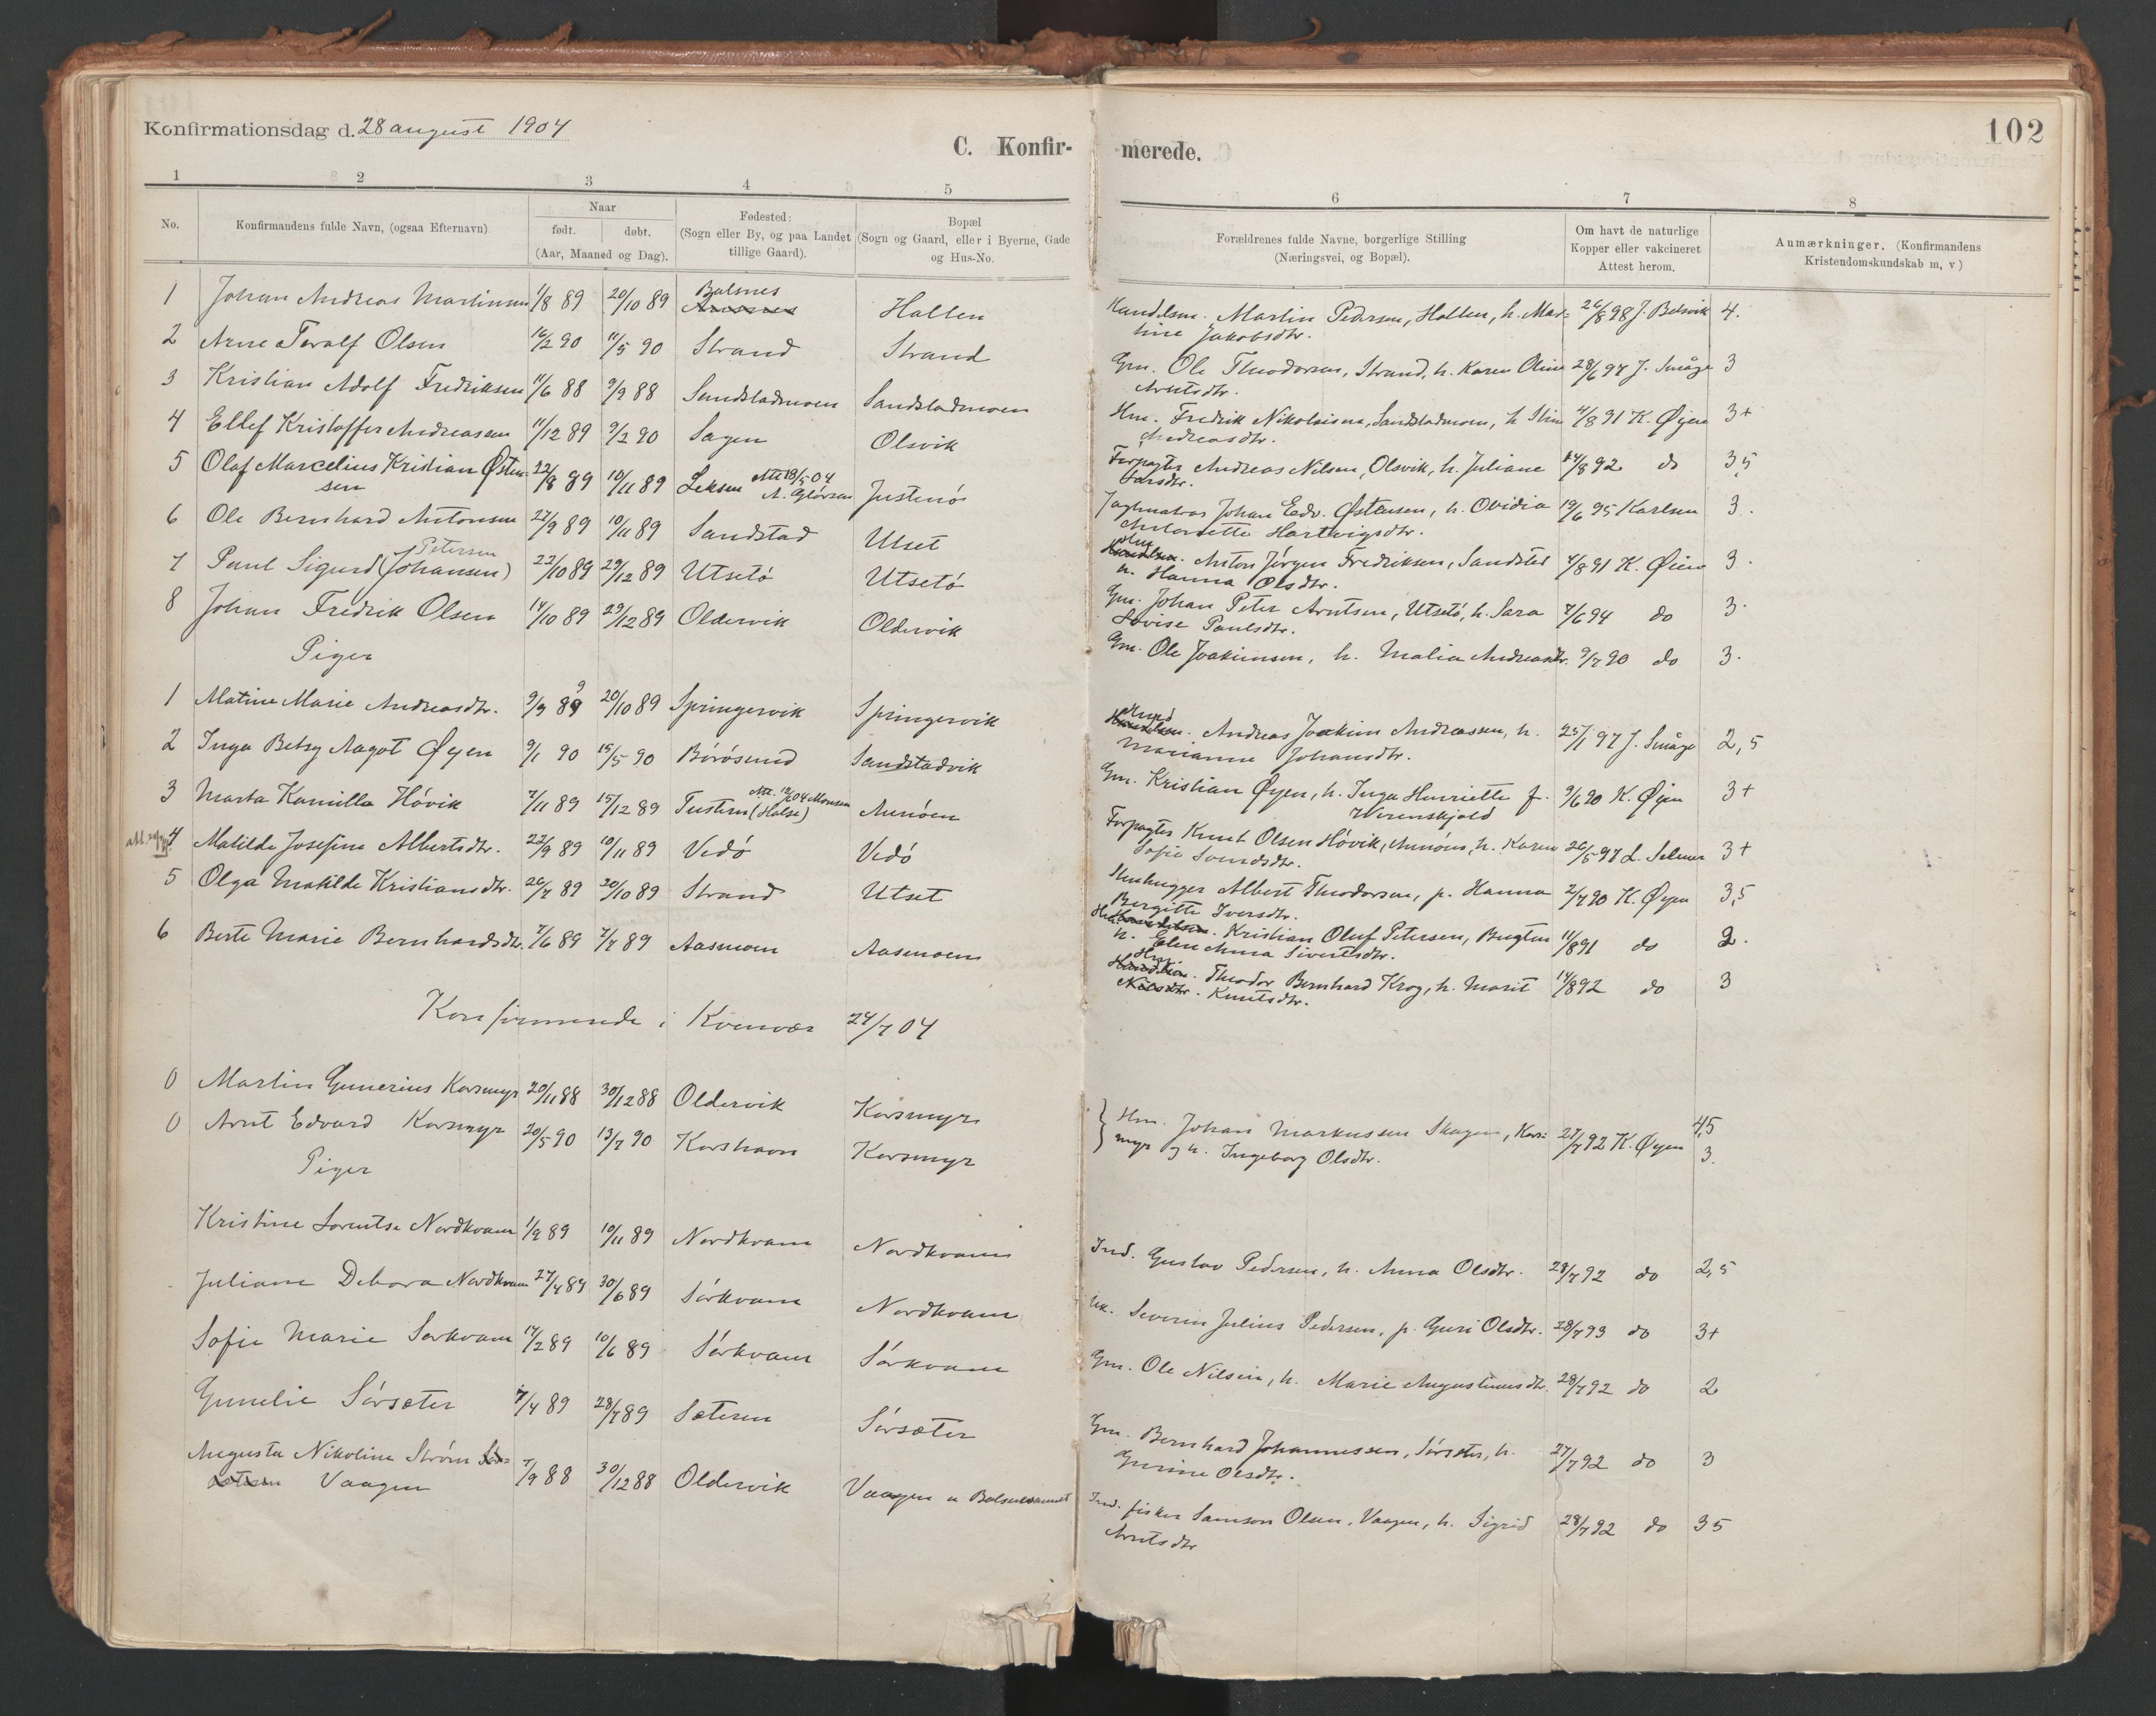 Konfirmationsdag d. 28 august 1904
C. Konfir-
merede.
102
1 2 3 4 5 6 7 8
No.
Konfirmandens fulde Navn, (ogsaa Efternavn)
Naar
født. døbt.
(Aar, Maaned og Dag).
Fødested:
(Sogn eller By, og paa Landet
tillige Gaard).
Bopæl
(Sogn og Gaard, eller i Byerne, Gade
og Hus-No.
Forældrenes fulde Navne, borgerlige Stilling
(Næringsvei, og Bopæl).
Om havt de naturlige
Kopper eller vakcineret
Attest herom.
Anmærkninger, (Konfirmandens
Kristendomskundskab m, v)
1 Johan Andreas Martinsen 1/8 89 20/10 89 Balsnes Hallen Handelsm. Martin Pedersen, Hallen, h. Mar= 26/8 98 J. Belsvik 4.
tine Jakobsdtr.
2 Arne Toralf Olsen 16/2 90 11/5 90 Strand Strand Gm. Ole Theodorsen, Strand, h. Karen Oline 28/6 97 J. Småge 3
Arntsdtr.
3 Kristian Adolf Fredriksen 11/6 88 9/9 88 Sandstadmoen Sandstadmoen Hm. Fredrik Nikolaisen, Sandstadmoen, h. Stine 4/8 91 K. Øyen 3+
Andreasdtr.
4 Ellef Kristoffer Andreassen 11/12 89 9/2 90 Sagen Olsvik Forpagter Andreas Nilsen, Olsvik, h. Juliane 14/8 92 do 3,5
Larsdtr.
5 Olaf Marcelius Kristian Østen- 22/8 89 10/11 89 Leksen Att 18/5 04 Justenö Johan Edv. Østensen, h. Ovidia 19/6 95 Karlsen 3.
sen
Antonette Hartvigsdtr.
6 Ole Bernhard Antonsen 27/9 89 10/11 89 Sandstad Utset Hm. Anton Jørgen Fredriksen, Sandstad 4/8 91 K. Øien 3.
h. Hanna Olsdtr.
Petersen
7 Paul Sigurd (Johansen) 22/10 89 29/12 89 Utsetö Utsetö Gm. Johan Peter Arntsen, Utsetö, h. Sara 7/6 94 do 3.
Lovise Paulsdtr.
8 Johan Fredrik Olsen 14/10 89 29/12 89 Oldervik Oldervik Gm. Ole Joakimsen, h. Malia Andreasdtr. 9/7 90 do 3.
Piger
1 Matine Marie Andreasdtr. 9/9 89 20/10 89 Springervik Springervik Andreas Joakim Andreassen, h. 25/1 97 J. Småge 2,5
Marianne Johansdtr.
2 Inga Betsy Aagot Øyen 9/1 90 15/5 90 Börösund Sandstadvik Gm. Kristian Øyen, h. Inga Henriette f. 9/6 90 K. Øyen 3+
Werenskjold
3 Marta Kamilla Hóvik 7/11 89 15/12 89 Tustern (Halsa) Aunöen Forpagter Knut Olsen Hóvik, Aunöen, h. Karen 26/5 97 L. Selmer 3+
Sofie
4 Matilde Josefine Albertsdtr. 22/9 89 10/11 89 Vedö Vedö Stenhugger Albert Theodorsen, p. Hanna 2/7 90 K. Øyen 3,5
Bergitte Iversdtr.
5 Olga Matilde Kristiansdtr. 26/7 89 20/10 89 Strand Utset Kristian Oluf Petersen, Bugten 11/8 91 do 2.
h. Elen Anna Sivertsdtr.
6 Berte Marie Bernhardsdtr. 7/6 89 7/7 89 Aasmoen Aasmoen Hm. Theodor Bernhard Krog, h. Marit 14/8 92 do 3
Knutsdtr.
Konfirmerede i Kvenvær 24/7 04
0 Martin Gunerius Korsmyr 20/11 88 30/12 88 Oldervik Korsmyr Hm. Johan Markussen Skagen, Kors= 27/7 92 K. Øyen 4,5
0 Arnt Edvard Korsmyr 20/5 90 13/7 90 Korshavn Korsmyr myr og h. Ingeborg Olsdtr. 3.
Piger
Kristine Lorentse Nordkvam 1/9 89 10/11 89 Nordkvam Nordkvam Ind. Gustav Pedersen, h. Anna Olsdtr. 28/7 92 do 2,5
Juliane Debora Nordkvam 27/4 89 30/6 89 Sörkvam Nordkvam Uk. Severin Julius Pedersen, p. Guri Olsdtr. 28/7 93 do 3+
Sofie Marie Sörkvam 17/2 89 10/6 89 Sörkvam Sörkvam Gm. Ole Nilsen, h. Marie Augustinusdtr. 28/7 92 do 2
Gunelie Sörsæter 7/4 89 28/7 89 Sæteren Sörsæter Gm. Bernhard Johannessen, Sörsæter, h. 27/7 92 do 3
Gurine Olsdtr.
Augusta Nikoline Strøm 7/9 88 30/12 88 Oldervik Vaagen Ind. fisker Samson Olsen, Vaagen, h. Sigrid 28/7 92 do 3 5
Vaagen
Arntsdtr